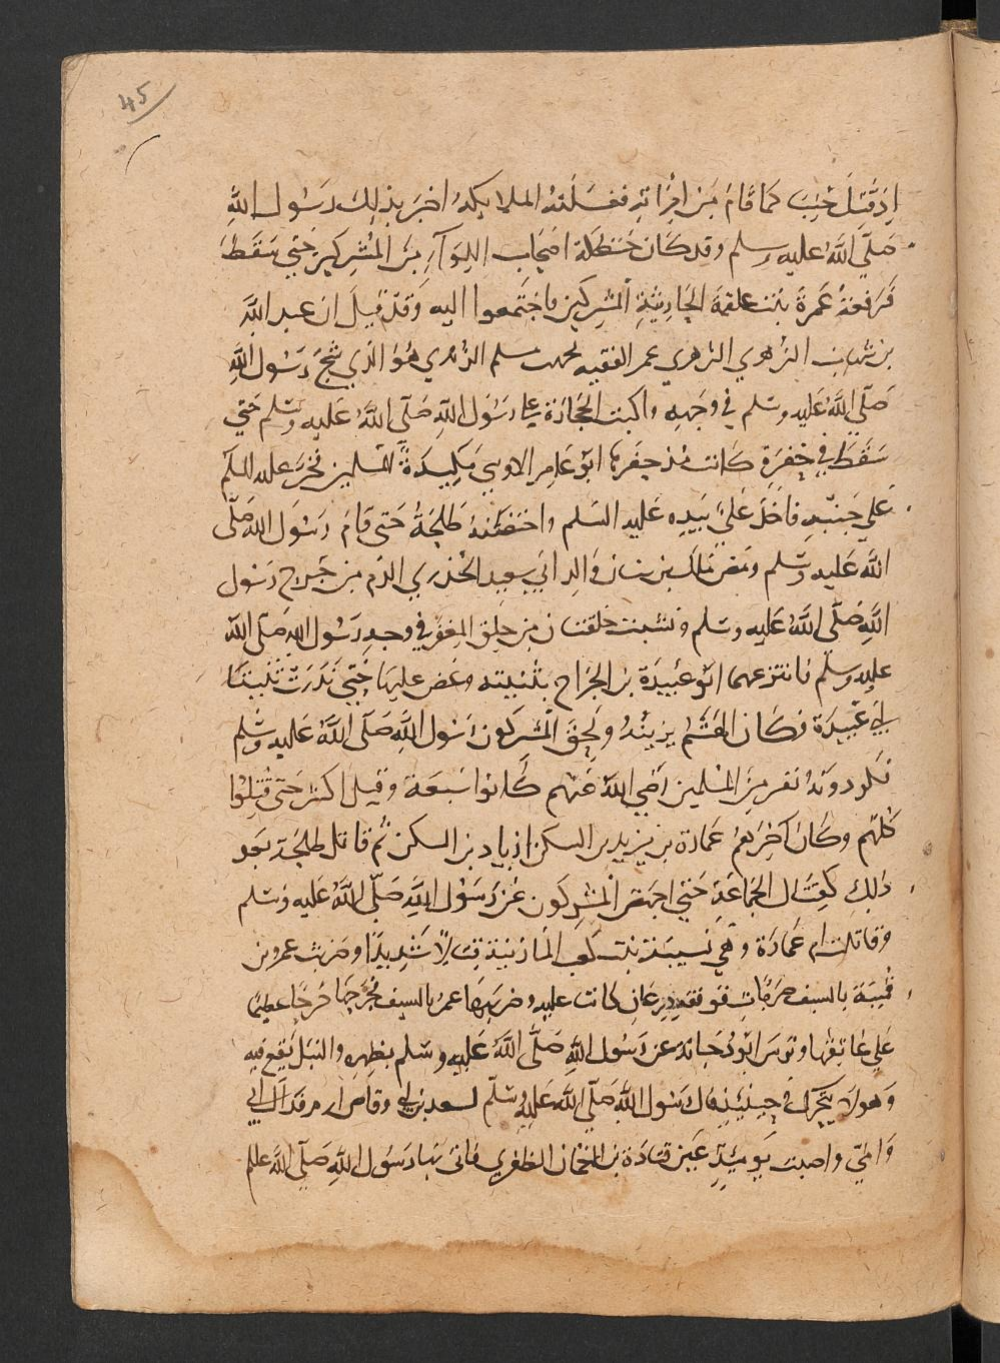 45
اذ قتل جنب كما قام من امراته فغسلته الملايكه اخبر بذلك رسول الله
صلى الله عليه وسلم وقد كان حنظلة اصحاب اللوآء من المشركين حتي سقط
فرفعته عمرة بنت علقمة الحارثية المشركين فاجتمعوا اليه وقد قيل ان عبد الله
بن شهاب الزهري الزهري عم الفقيه محمد بن مسلم الزهري هو الذي شج رسول الله
صلى الله عليه وسلم في وجهه واكبت الحجارة على رسول الله صلى الله عليه وسلم حتي
سقط في حفرة كانت قد حفرها ابو عامر الاوسي مكيدة للمسلمين فخر عليه السلم
علي جنبه فاخذ علي بيده عليه السلم واحتضنه طلحة حتى قام رسول الله صلى
الله عليه وسلم ومص ملك بن سنان والد ابي سعيد الخدري الدم من جرح رسول
الله صلى الله عليه وسلم ونشبت حلقتان من حلق المغفر في وجه رسول الله صلى الله
عليه وسلم فانتزعهما ابو عبيدة بن الجراح بثنيته وعض عليها حتي ندرت ثنيتا
ابي عبيدة فكان الهتم يزينه ولحق المشركون رسول الله صلى الله عليه وسلم
فكر دونه نفر من المسلمين رضي الله عنهم كانوا سبعة وقيل اكثر حتى قتلوا
كلهم وكان اخرهم عمارة بن يزيد بن السكن او زياد بن السكن ثم قاتل طلحة بعد
ذلك كقتال الجماعة حتي اجهض المشركون عن رسول الله صلى الله عليه وسلم
وقاتلت ام عمارة وهي نسيبة بنت كعب المازنية قتالا شديدا وضربت عمرو بن
قميئة بالسيف ضربات فوقته درعان كانت عليه وضربها عمرو بالسيف فجرحها جرحا عظيما
علي عاتقها وترس ابو دجانة عن رسول الله صلى الله عليه وسلم بظهره والنبل يقع فيه
وهو لا يتحرك في حينئذ قال رسول الله صلى الله عليه وسلم لسعد بن ابي وقاص ارم فداك ابي
وامي واصيبت يومئذ عين قتادة بن النعمان الظفري فاتى بها رسول الله صلى الله عليه